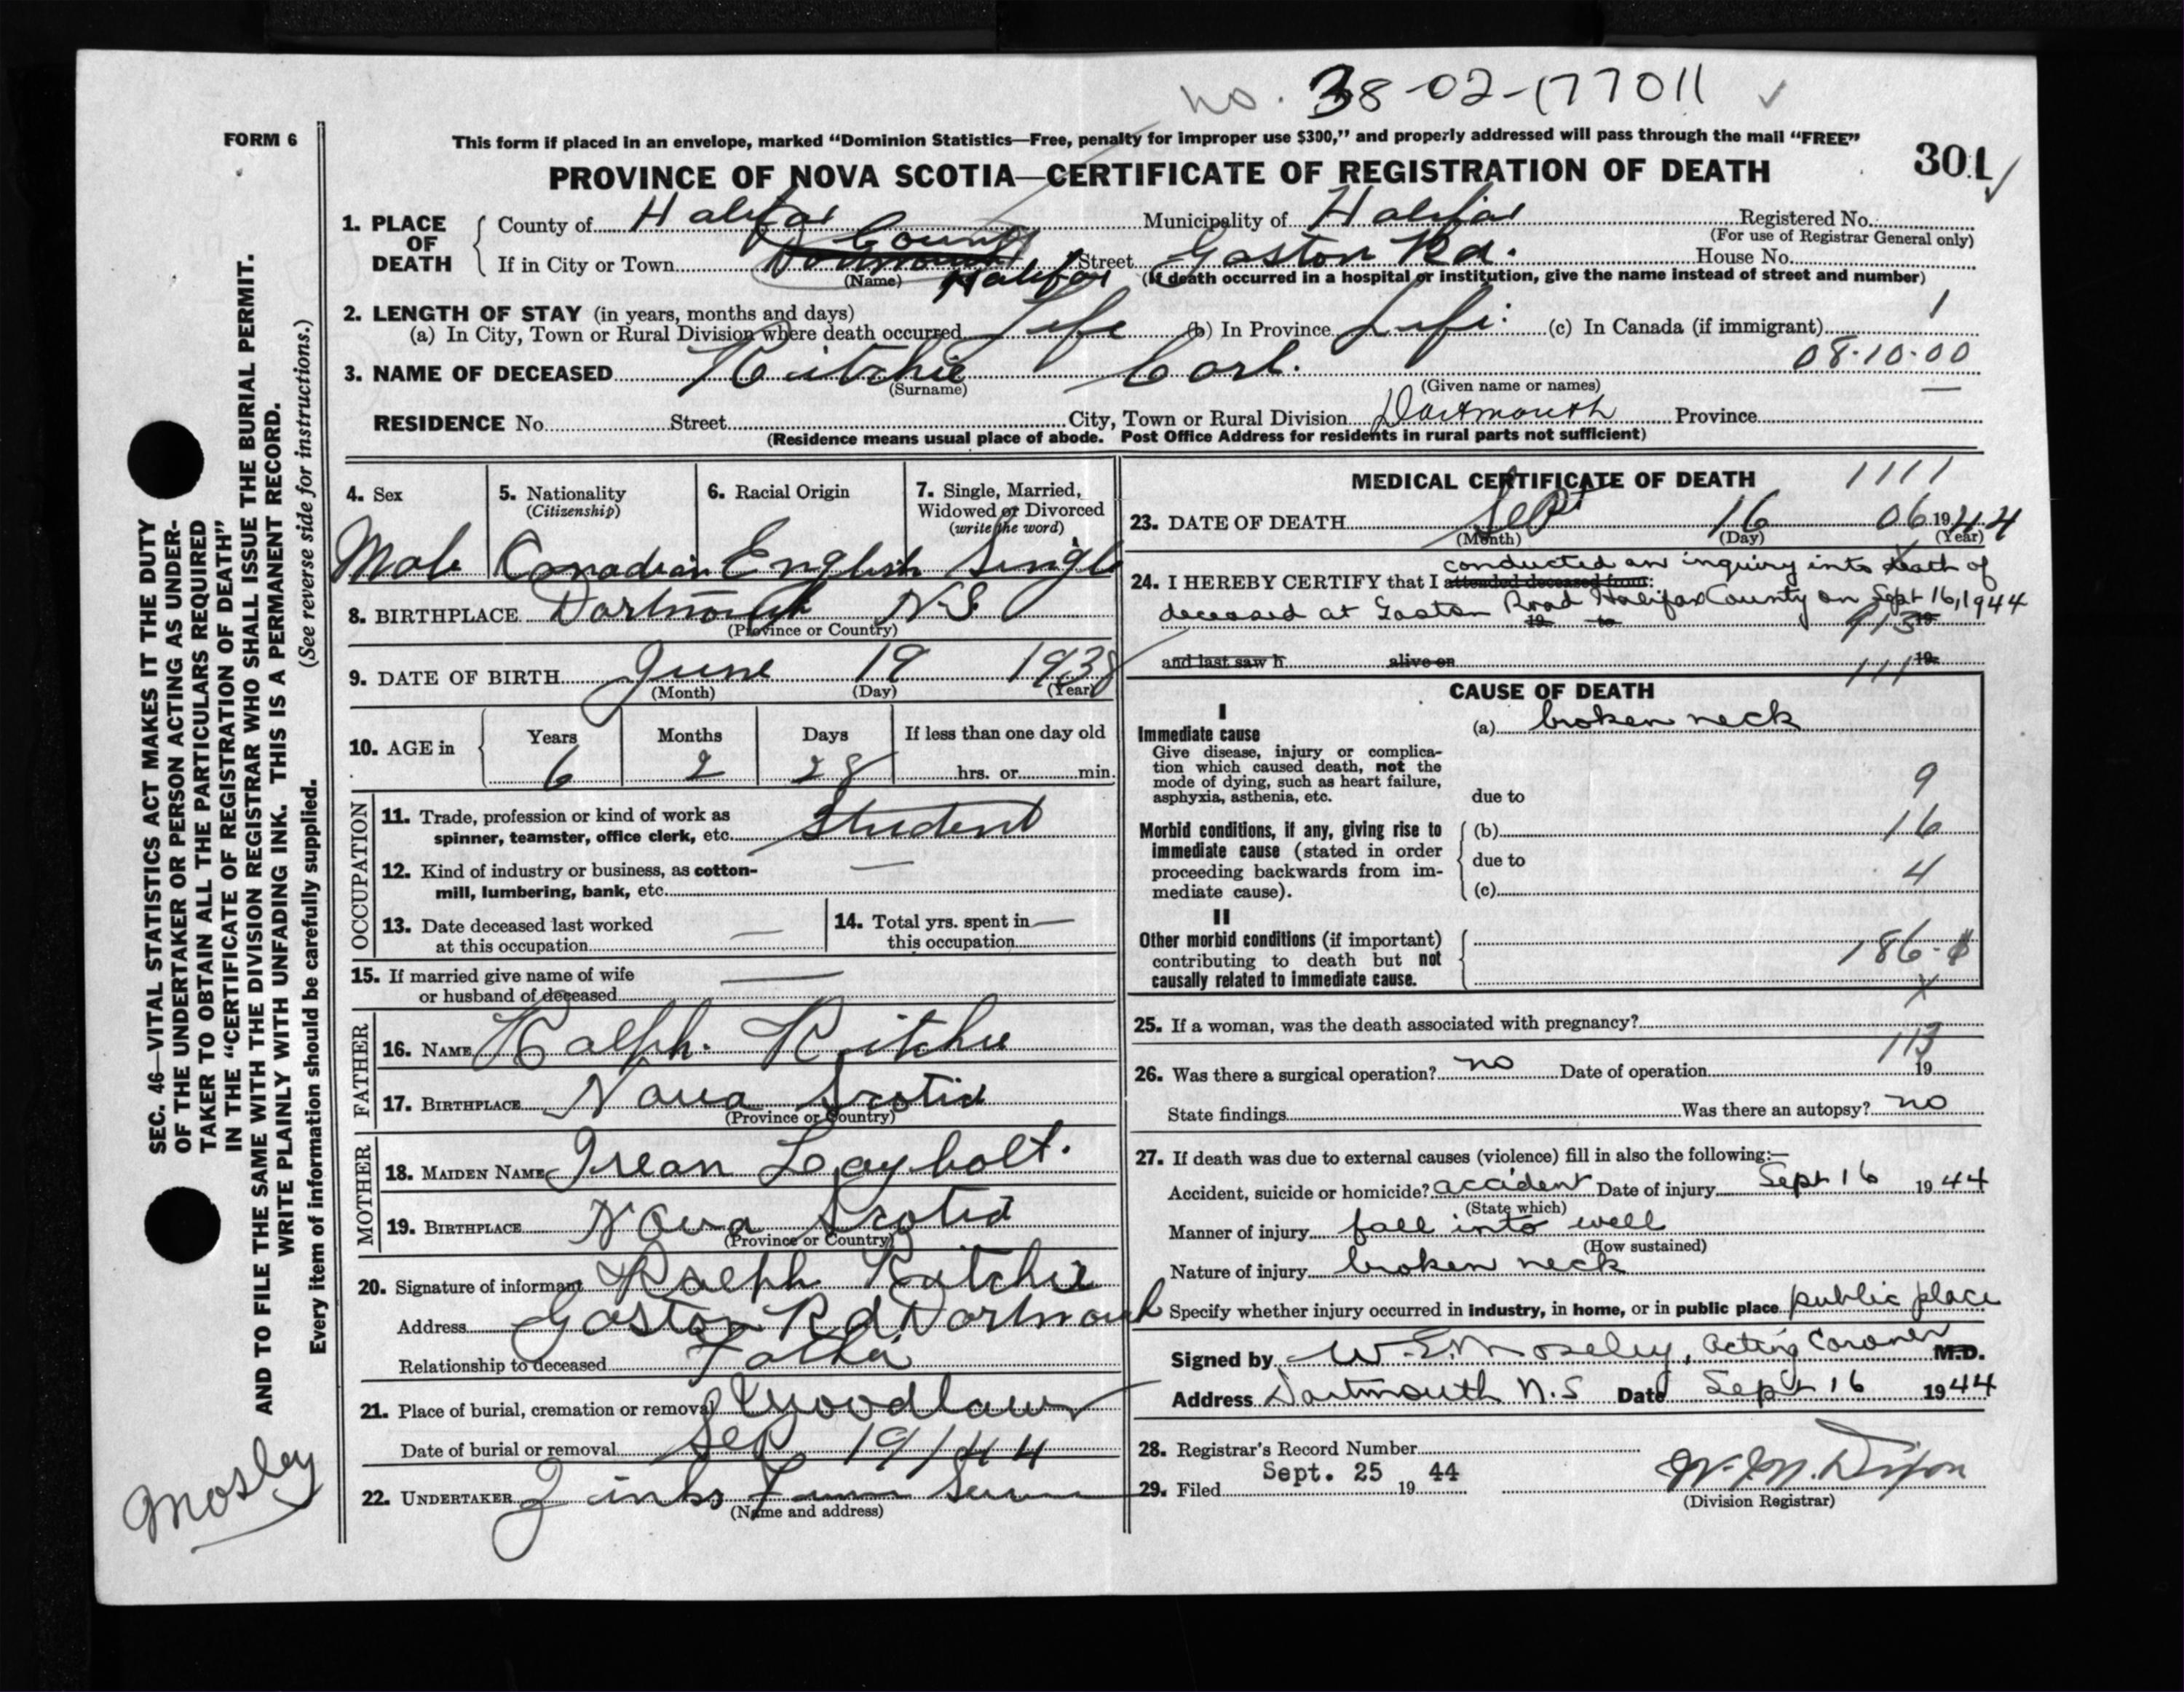 no. 38-02-177011 ✓
FORM 6
This form if placed in an envelope, marked “Dominion Statistics—Free, penalty for improper use $300,” and properly addressed will pass through the mail “FREE”
PROVINCE OF NOVA SCOTIA—CERTIFICATE OF REGISTRATION OF DEATH
301 ✓
1. PLACE OF DEATH
County of Halifax Municipality of Halifax Registered No.
(For use of Registrar General only)
County
If in City or Town Dartmouth Halifax Street Gaston Rd. House No.
(Name) (If death occurred in a hospital or institution, give the name instead of street and number)
2. LENGTH OF STAY (in years, months and days) 1
(a) In City, Town or Rural Division where death occurred Life (b) In Province Life. (c) In Canada (if immigrant)
08-10-00
3. NAME OF DECEASED Ritchie Carl.
(Surname) (Given name or names)
RESIDENCE No. Street City, Town or Rural Division Dartmouth Province
(Residence means usual place of abode. Post Office Address for residents in rural parts not sufficient)
4. Sex 5. Nationality (Citizenship) 6. Racial Origin 7. Single, Married, Widowed or Divorced (write the word)
Male Canadian English Single
8. BIRTHPLACE Dartmouth N.S.
(Province or Country)
9. DATE OF BIRTH June 19 1938
(Month) (Day) (Year)
10. AGE in Years Months Days If less than one day old
6 2 28 hrs. or min.
OCCUPATION
11. Trade, profession or kind of work as
spinner, teamster, office clerk, etc. Student
12. Kind of industry or business, as cotton-
mill, lumbering, bank, etc. —
13. Date deceased last worked
at this occupation —
14. Total yrs. spent in —
this occupation
15. If married give name of wife
or husband of deceased —
FATHER
16. NAME Ralph. Ritchie
17. BIRTHPLACE Nova Scotia
(Province or Country)
MOTHER
18. MAIDEN NAME Irean Laybolt.
19. BIRTHPLACE Nova Scotia
(Province or Country)
20. Signature of informant Ralph Ritchie
Address Gaston Rd Dartmouth
Relationship to deceased Father
21. Place of burial, cremation or removal Woodlawn
Date of burial or removal Sep 19/44
22. UNDERTAKER
(Name and address)
MEDICAL CERTIFICATE OF DEATH 1111
23. DATE OF DEATH Sept 16 06 1944
(Month) (Day) (Year)
conducted an inquiry into death of
24. I HEREBY CERTIFY that I attended deceased from:
deceased at Gaston Road Halifax County on Sept 16, 1944
19 to 913 19
and last saw h alive on 111 19
CAUSE OF DEATH
I
Immediate cause
Give disease, injury or complica-
tion which caused death, not the
mode of dying, such as heart failure,
asphyxia, asthenia, etc.
(a) broken neck
9
due to
Morbid conditions, if any, giving rise to
immediate cause (stated in order
proceeding backwards from im-
mediate cause).
(b) 16
due to 4
(c)
II
Other morbid conditions (if important)
contributing to death but not
causally related to immediate cause.
186-
X
25. If a woman, was the death associated with pregnancy?
113
26. Was there a surgical operation? no Date of operation 19
State findings Was there an autopsy? no
27. If death was due to external causes (violence) fill in also the following:—
Accident, suicide or homicide? accident Date of injury Sept 16 1944
(State which)
Manner of injury fall into well
(How sustained)
Nature of injury broken neck
Specify whether injury occurred in industry, in home, or in public place public place
Signed by W.E. Moseley, Acting Coroner M.D.
Address Dartmouth N.S Date Sept 16 1944
28. Registrar's Record Number
29. Filed Sept. 25 19 44 W. M. Dixon
(Division Registrar)
SEC. 46—VITAL STATISTICS ACT MAKES IT THE DUTY
OF THE UNDERTAKER OR PERSON ACTING AS UNDER-
TAKER TO OBTAIN ALL THE PARTICULARS REQUIRED
IN THE “CERTIFICATE OF REGISTRATION OF DEATH”
AND TO FILE THE SAME WITH THE DIVISION REGISTRAR WHO SHALL ISSUE THE BURIAL PERMIT.
WRITE PLAINLY WITH UNFADING INK. THIS IS A PERMANENT RECORD.
(See reverse side for instructions.)
Every item of information should be carefully supplied.
Mosley